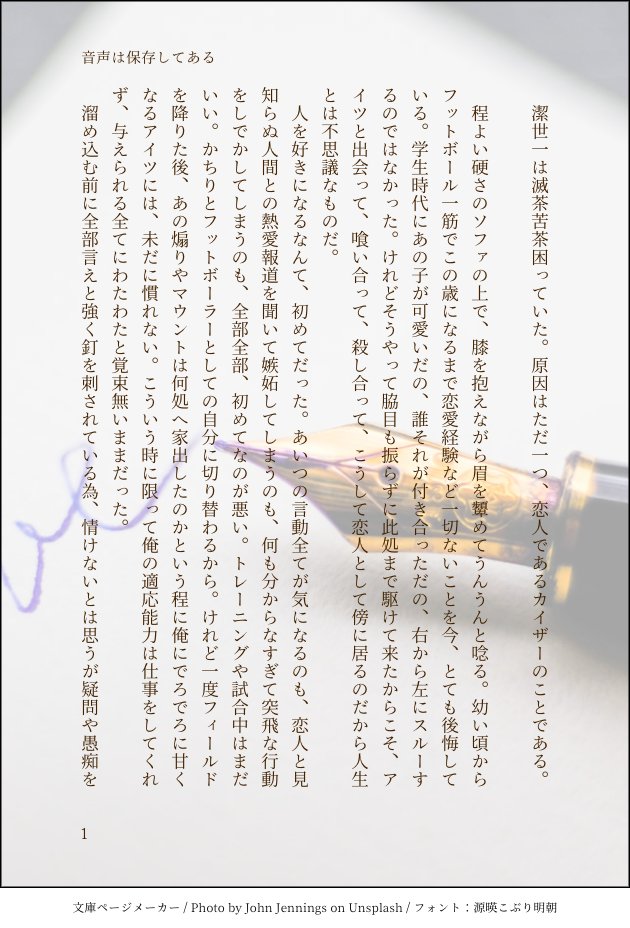 音声は保存してある
潔世一は滅茶苦茶困っていた。原因はただ一つ、恋人であるカイザーのことである。
程よい硬さのソファの上で、膝を抱えながら眉を顰めてうんうんと唸る。幼い頃から
フットボール一筋でこの歳になるまで恋愛経験など一切ないことを今、とても後悔して
いる。学生時代にあの子が可愛いだの、誰それが付き合っただの、右から左にスルーす
るのではなかった。けれどそうやって脇目も振らずに此処まで駆けて来たからこそ、ア
イツと出会って、喰い合って、殺し合って、こうして恋人として傍に居るのだから人生
とは不思議なものだ。
人を好きになるなんて、初めてだった。あいつの言動全てが気になるのも、恋人と見
知らぬ人間との熱愛報道を聞いて嫉妬してしまうのも、何も分からなすぎて突飛な行動
をしでかしてしまうのも、全部全部、初めてなのが悪い。トレーニングや試合中はまだ
いい。かちりとフットボーラーとしての自分に切り替わるから。けれど一度フィールド
を降りた後、あの煽りやマウントは何処へ家出したのかという程に俺にでろでろに甘く
なるアイツには、未だに慣れない。こういう時に限って俺の適応能力は仕事をしてくれ
ず、与えられる全てにわたわたと覚束無いままだった。
溜め込む前に全部言えと強く釘を刺されている為、情けないとは思うが疑問や愚痴を
1
文庫ページメーカー / Photo by John Jennings on Unsplash / フォント：源暎こぶり明朝